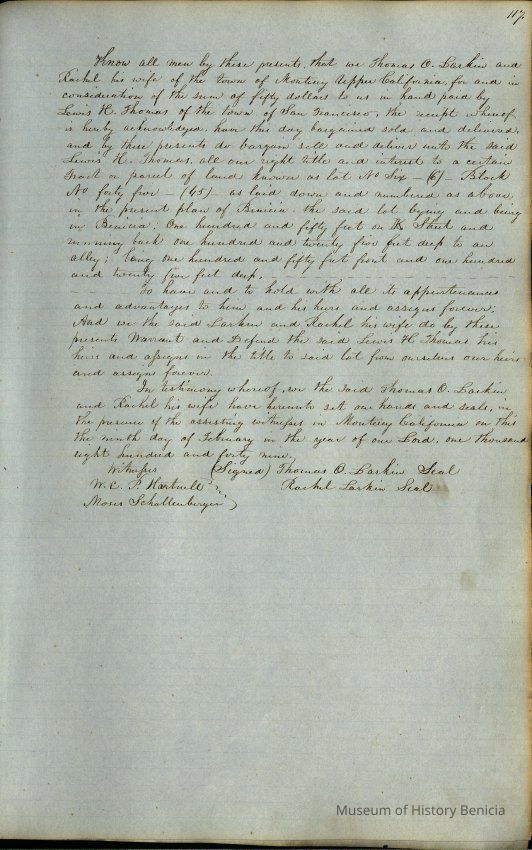 117
Know all men by these presents, that we Thomas O. Larkin and
Rachel his wife of the town of Monterey Upper California, for and in
consideration of the sum of fifty dollars to us in hand paid by
Lewis H. Thomas of the town of San Francisco, the receipt whereof
is hereby acknowledged, have this day bargained sold and delivered,
and by these presents do bargain sell and deliver unto the said
Lewis H. Thomas, all our right title and interest to a certain
tract or parcel of land known as lot No Six – (6) – Block
No forty five – (45) – as laid down and numbered as above,
in the present plan of Benicia, the said lot lying and being
in Benicia; One hundred and fifty feet on K Street and
running back one hundred and twenty five feet deep to an
alley; being one hundred and fifty feet front and one hundred
and twenty five feet deep.
To have and to hold with all its appurtenances
and advantages to him and his heirs and assigns forever;
And we the said Larkin and Rachel his wife do by these
presents Warrant and Defend the said Lewis H Thomas his
heirs and assigns in the title to said lot from ourselves our heirs
and assigns forever.
In testimony whereof, we the said Thomas O. Larkin
and Rachel his wife have hereunto set our hands and seals, in
the presence of the assisting witnesses in Monterey California on this
the ninth day of February in the year of our Lord, one thousand
eight hundred and forty nine.
Witnesses (Signed) Thomas O. Larkin Seal
W. E. P. Hartnell Rachel Larkin Seal
Moses Schallenberger
Museum of History Benicia